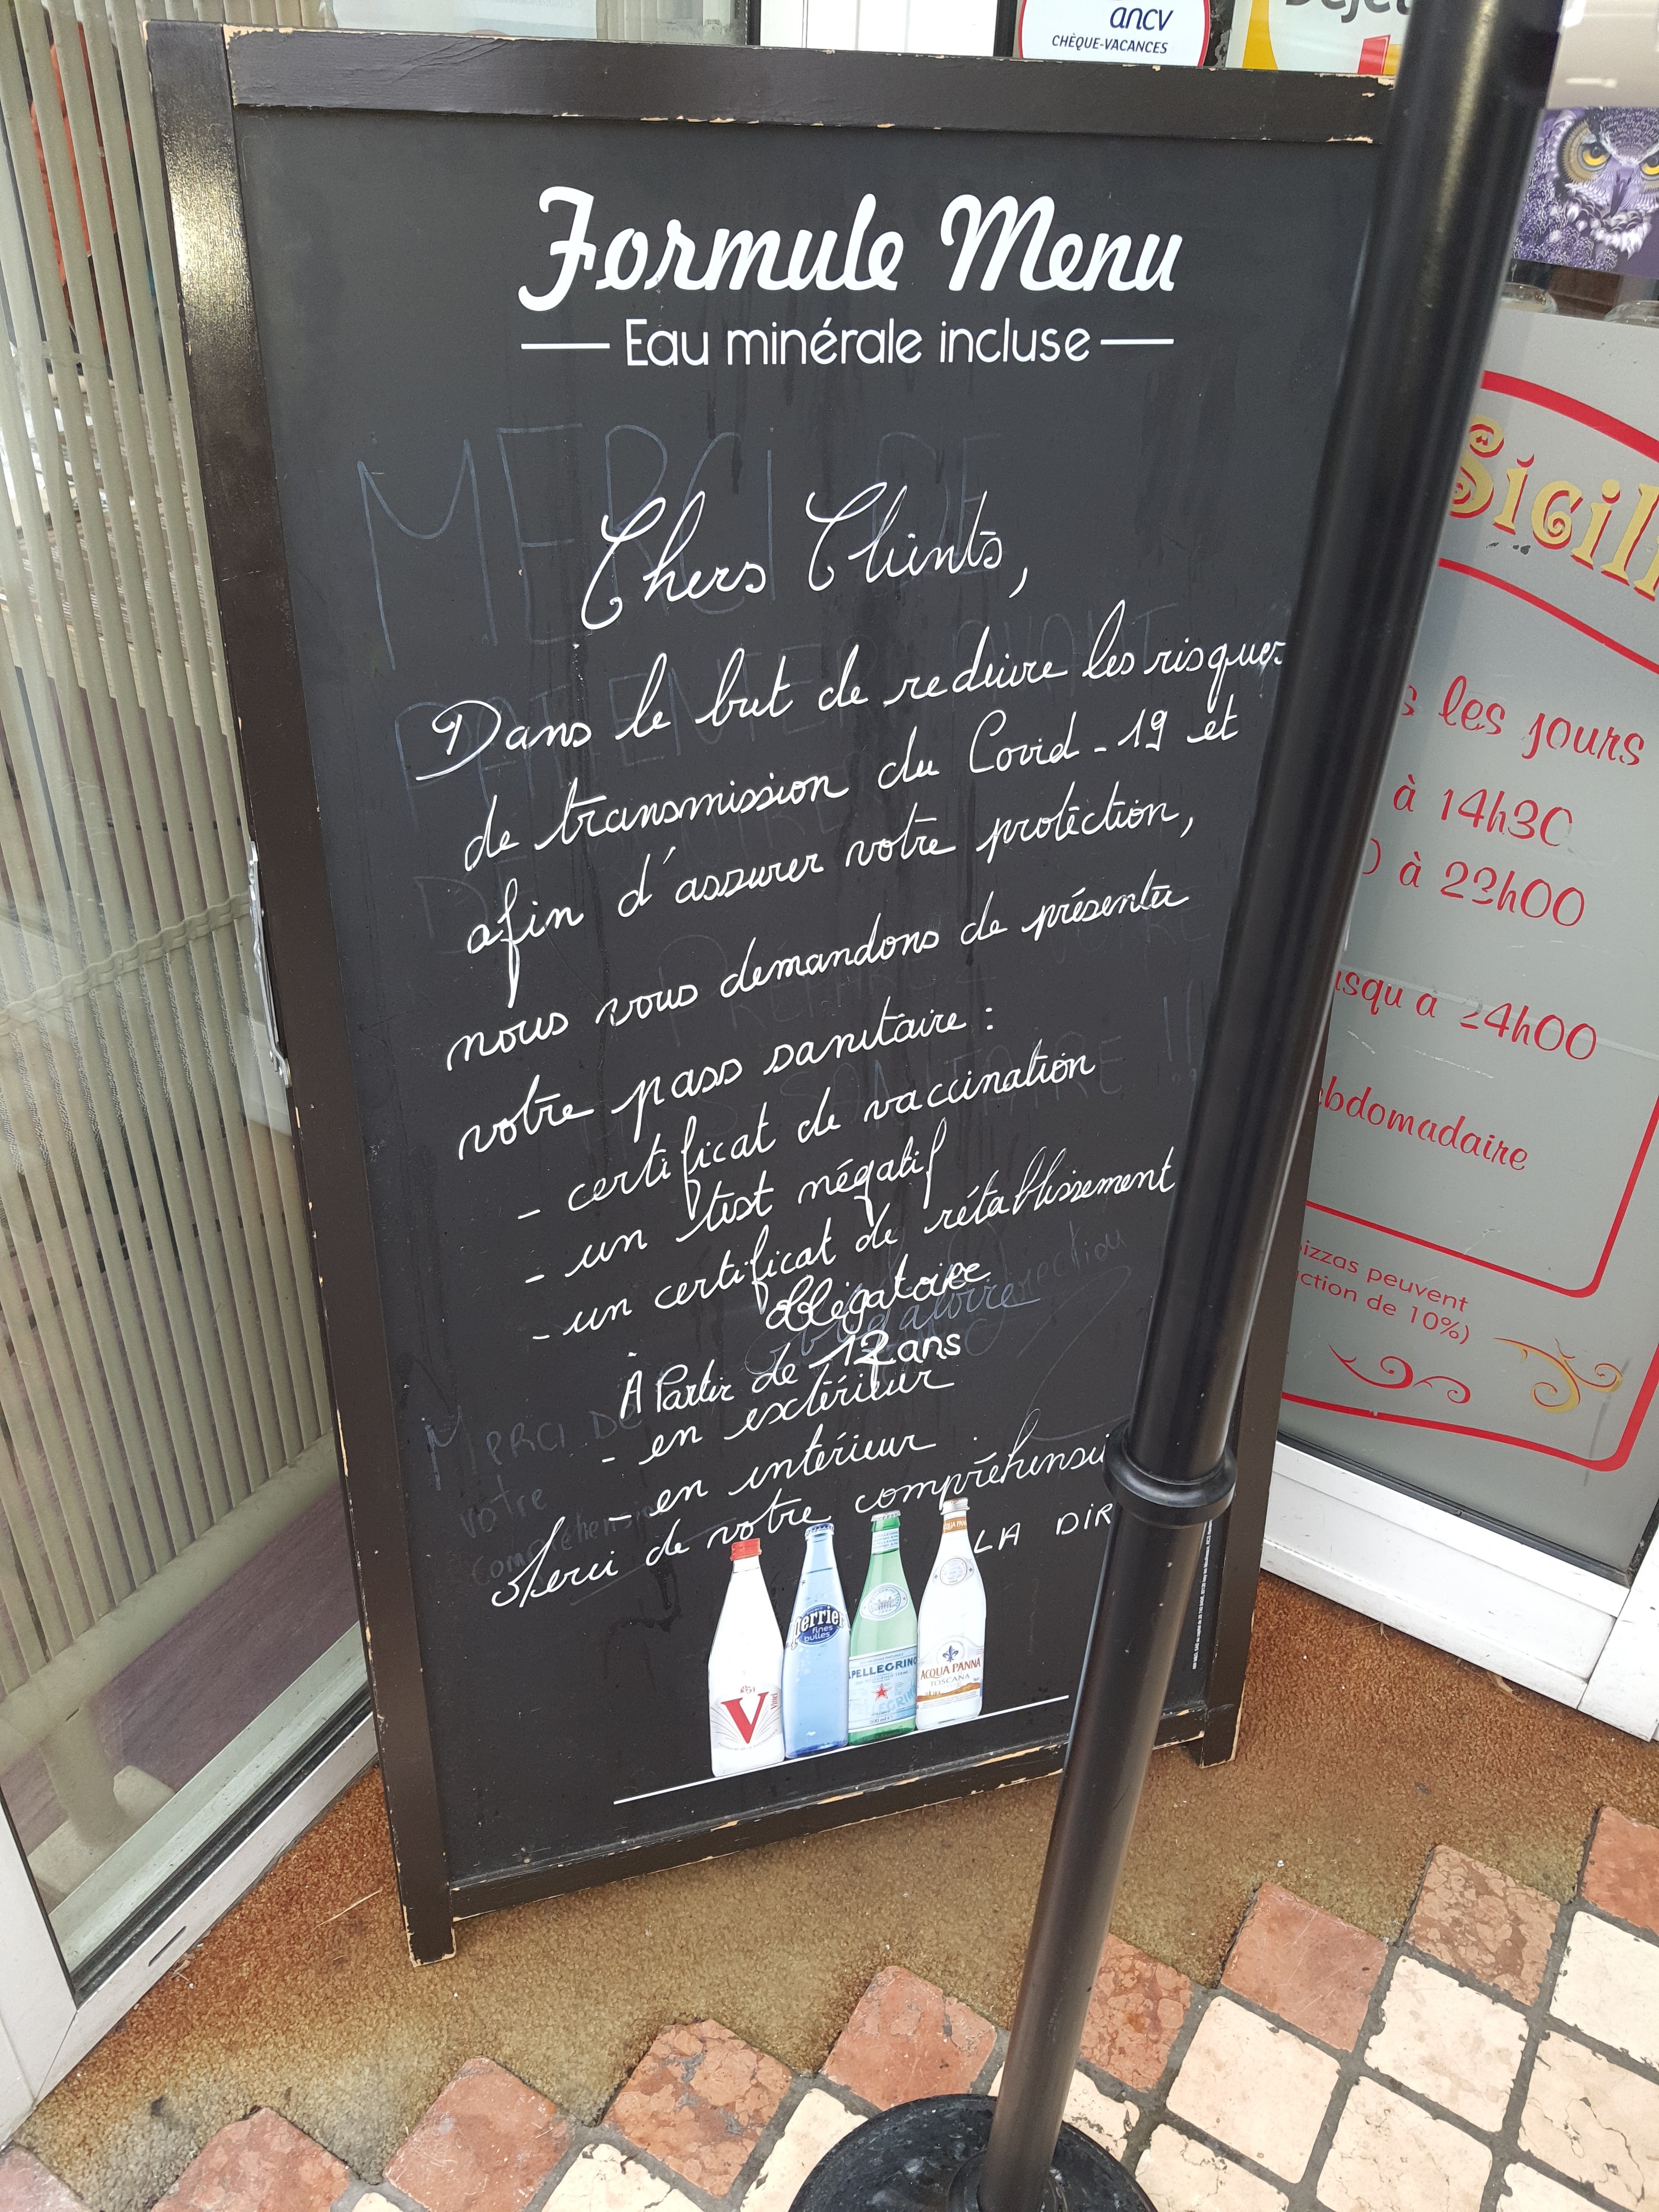 ancv
CHÈQUE-VACANCES
Formule Menu
Eau minérale incluse
MERCI DE
Chers Clients,
Dans le but de reduire les risques
de transmission du Covid-19 et
afin d'assurer votre protection,
nous vous demandons de présenter
votre pass sanitaire :
- certificat de vaccination
- un test négatif
- un certificat de rétablissement
obligatoire
À Partir de 12 ans
- en extérieur
- en intérieur
Merci de votre compréhensi
LA DIR
MERCI DE
votre
V
Vittel
Perrier
fines
bulles
PELLEGRINO
ACQUA PANNA
TOSCANA
Sicili
s les jours
à 14h30
0 à 23h00
usqu'a 24h00
ebdomadaire
izzas peuvent
ction de 10%)